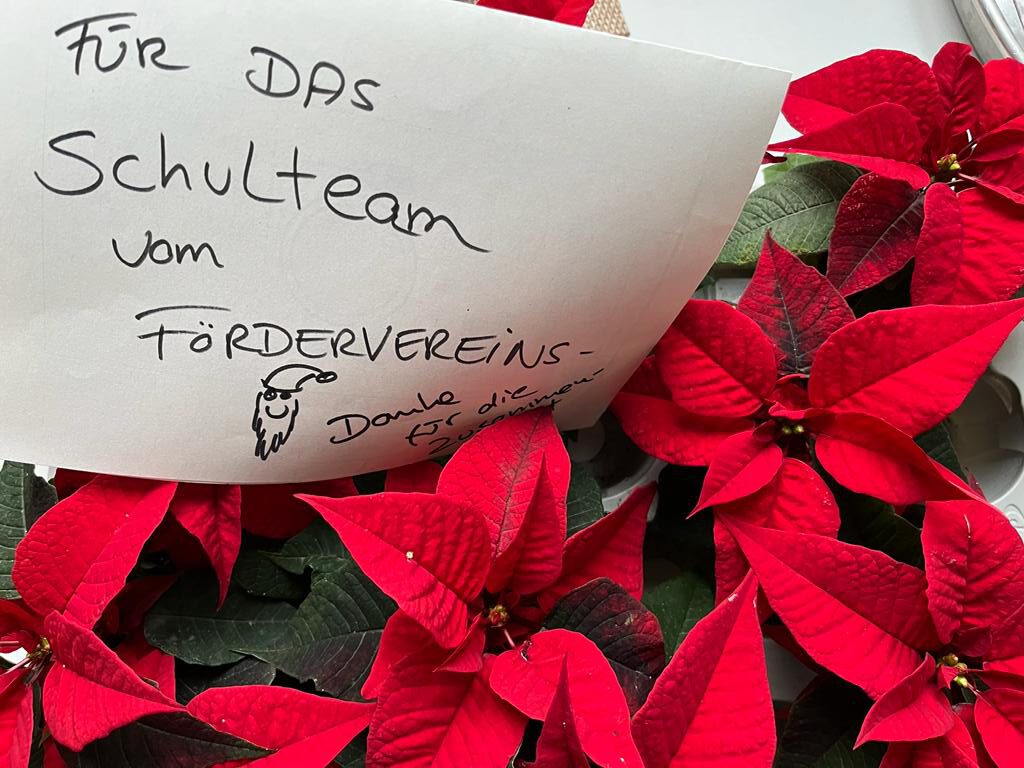 FÜR DAS
Schulteam
vom
FÖRDERVEREINS-
Danke
für die
zusammen-